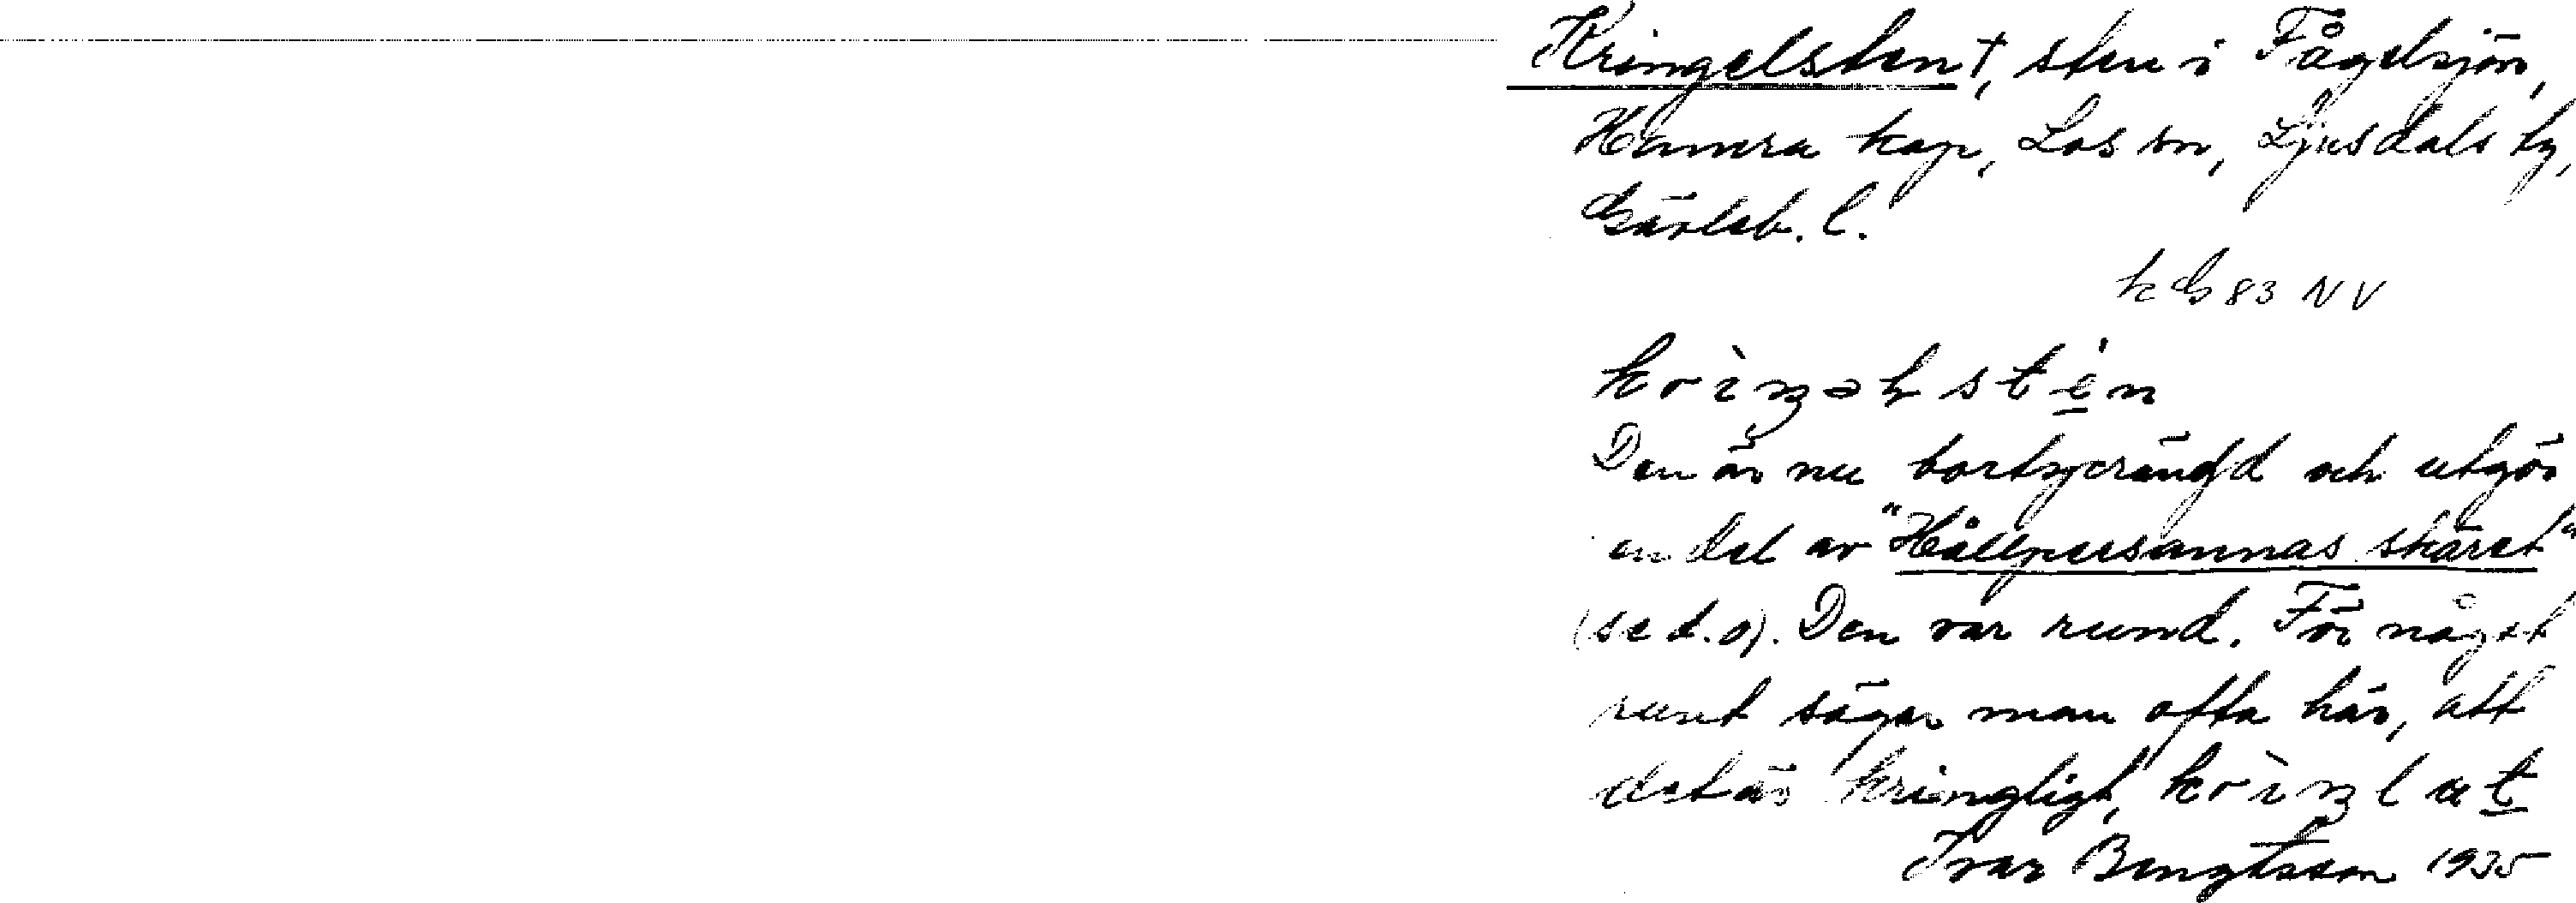 Kringelsten †, sten i Fågelsjön,
Hamra kap, Los sn, Ljusdals tg,
Gävleb. l.
k G 83 NV
Den är nu bortsprängd och utgör
en del av "Hållpersannas skäret"
(se d.o). Den var rund. För något
runt säger man ofta här, att
det är "kringligt",
Ivar Bengtsson 1935